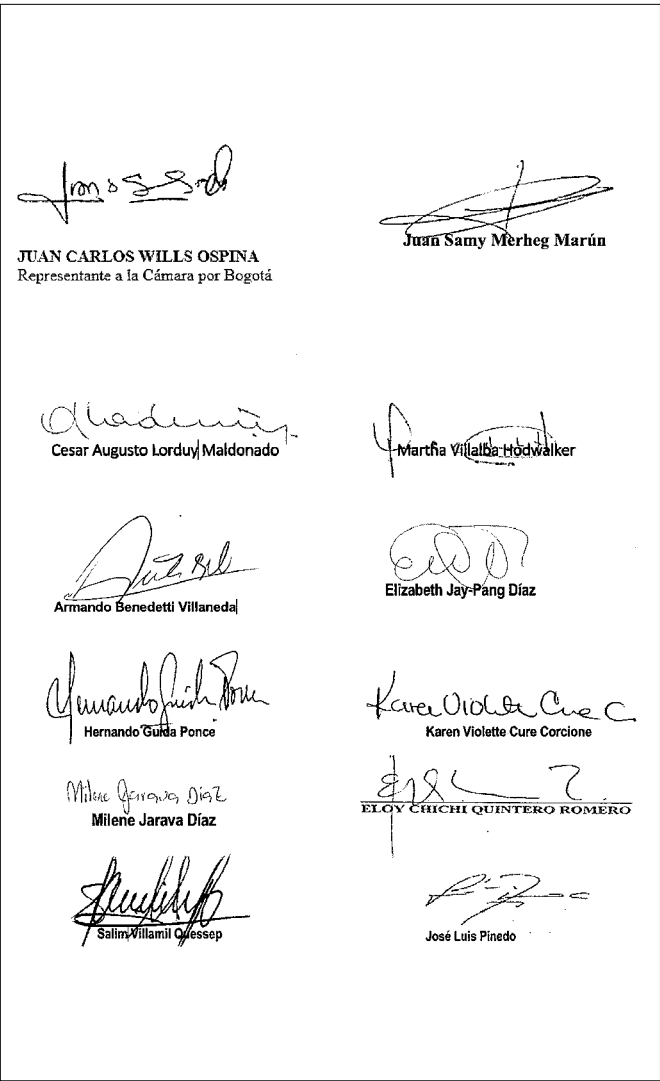 JUAN CARLOS WILLS OSPINA
Representante a la Cámara por Bogotá
Juan Samy Merheg Marún
Cesar Augusto Lorduy Maldonado
Martha Villalba Hodwalker
Armando Benedetti Villaneda
Elizabeth Jay-Pang Díaz
Hernando Guida Ponce
Hernando Guida Ponce
Karen Violette Cure C
Karen Violette Cure Corcione
Milene Jarava Diaz
Milene Jarava Díaz
ELOY CHICHI QUINTERO ROMERO
Salim Villamil Quessep
José Luis Pinedo